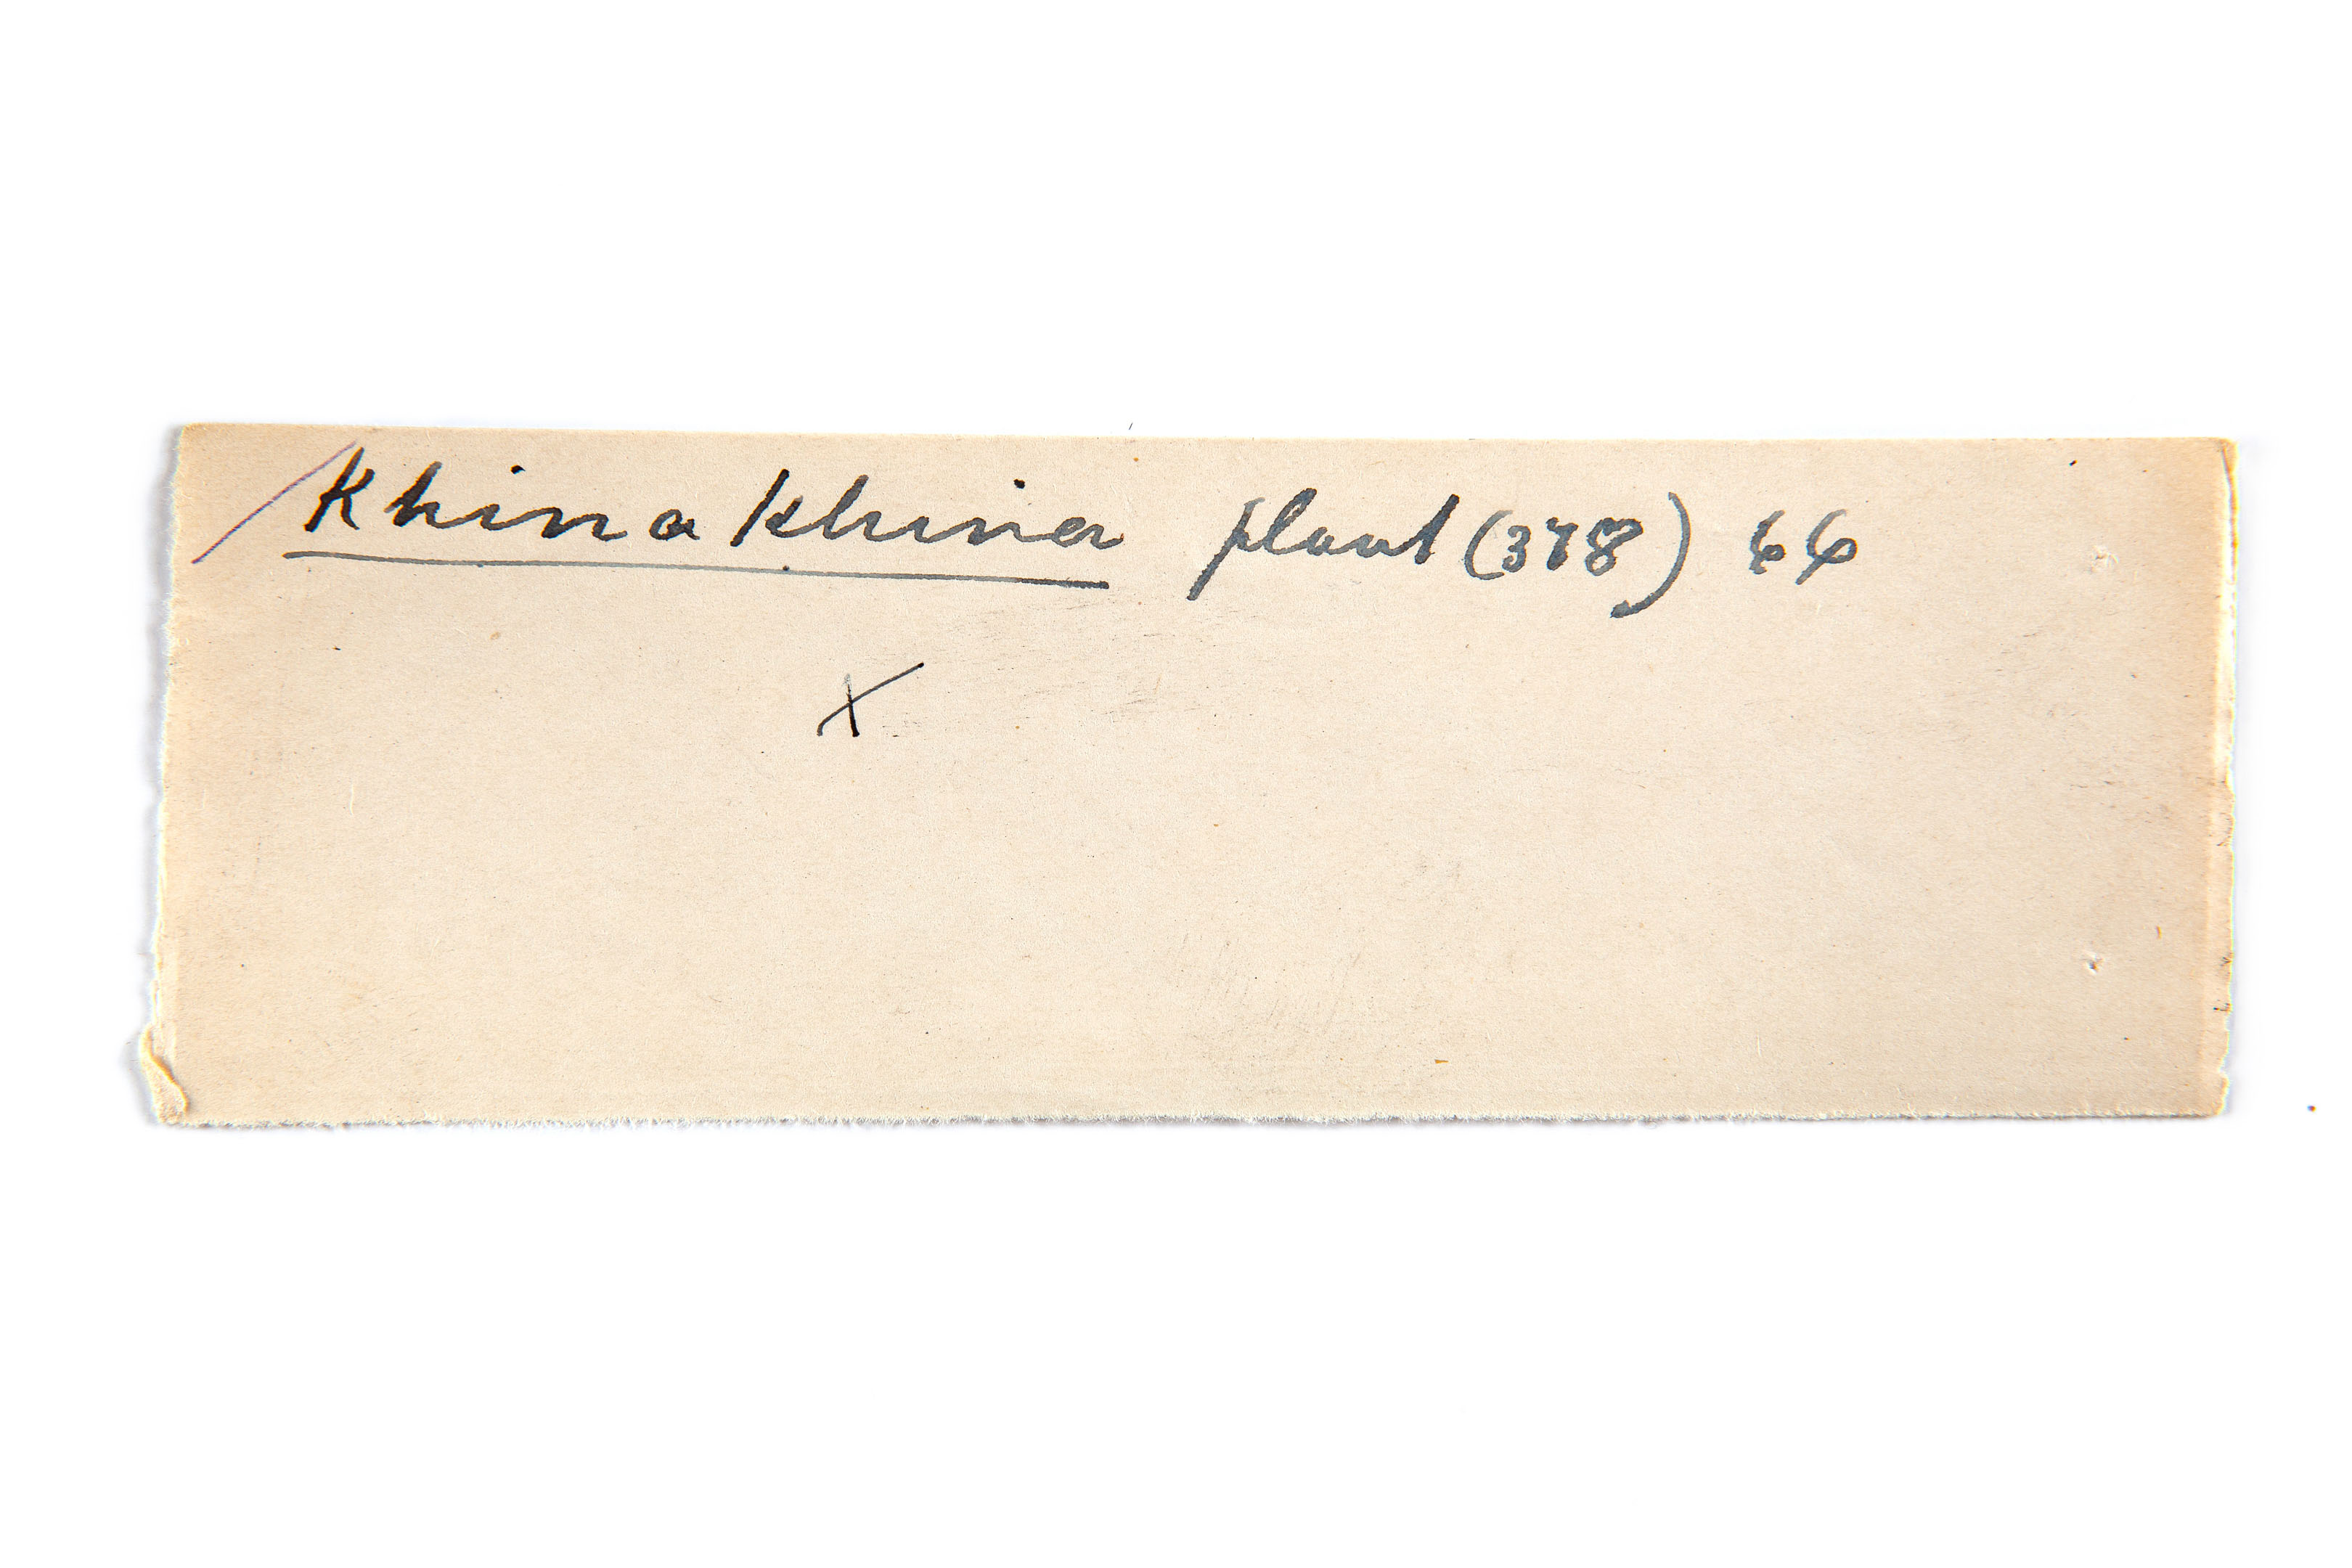 Khina Khina plant (378) 66
X